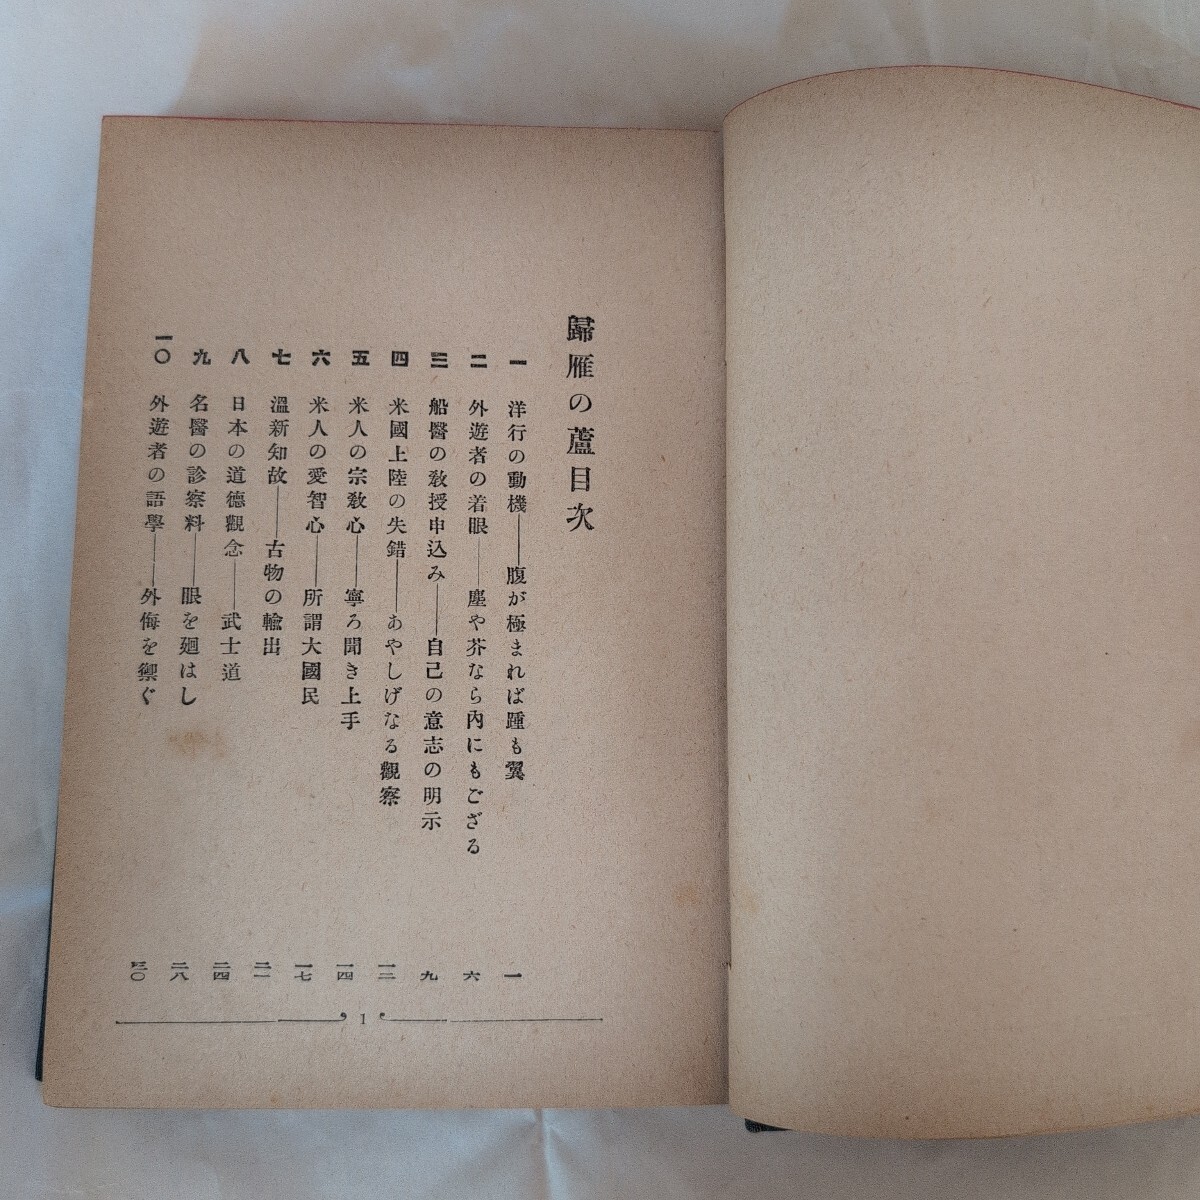 歸雁の蘆目次
一 洋行の動機――腹が極まれば踵も翼 一
二 外遊者の着眼――塵や芥なら內にもござる 六
三 船醫の敎授申込み――自己の意志の明示 九
四 米國上陸の失錯――あやしげなる觀察 一二
五 米人の宗敎心――寧ろ聞き上手 一四
六 米人の愛智心――所謂大國民 一七
七 溫新知故――古物の輸出 二一
八 日本の道德觀念――武士道 二四
九 名醫の診察料――眼を廻はし 二八
一〇 外遊者の語學――外侮を禦ぐ 三〇
1